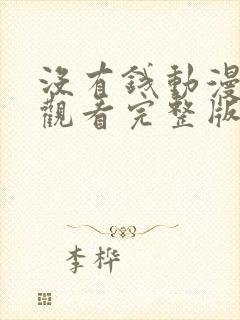 没有錢動漫
觀看完整版
李桦